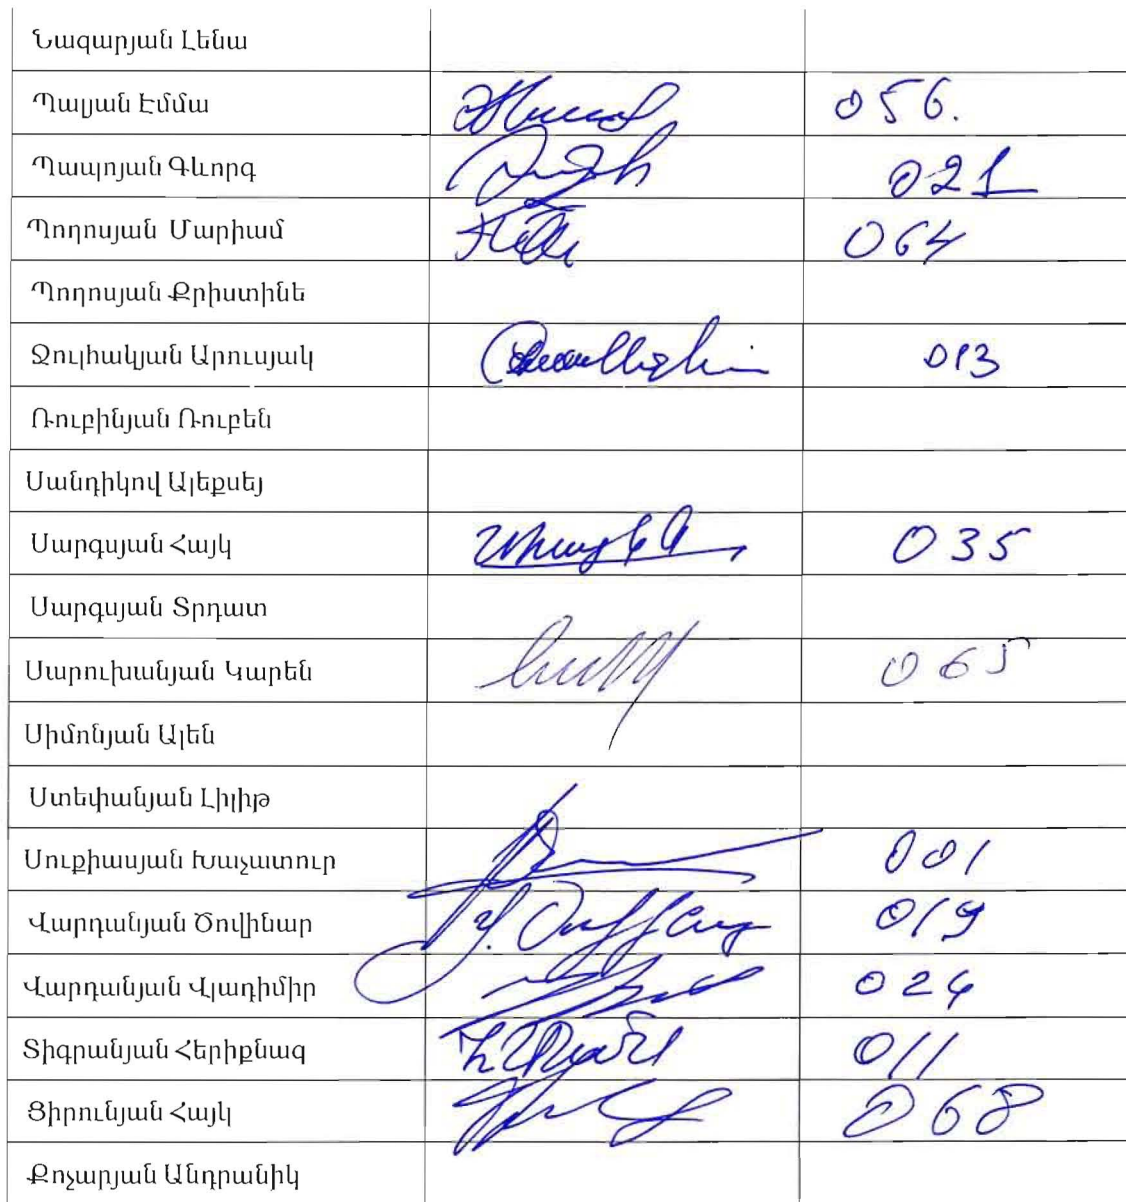 Նազարյան Լենա
Պալյան Էմմա 056.
Պապոյան Գևորգ 021
Պողոսյան Մարիամ 064
Պողոսյան Քրիստինե
Ջուլհակյան Արուսյակ 013
Ռուբինյան Ռուբեն
Սանդիկով Ալեքսեյ
Սարգսյան Հայկ 035
Սարգսյան Տրդատ
Սարուխանյան Կարեն 065
Սիմոնյան Ալեն
Ստեփանյան Լիլիթ
Սուքիասյան Խաչատուր 001
Վարդանյան Ծովինար 019
Վարդանյան Վլադիմիր 024
Տիգրանյան Հերիքնազ 011
Ցիրունյան Հայկ 068
Քոչարյան Անդրանիկ